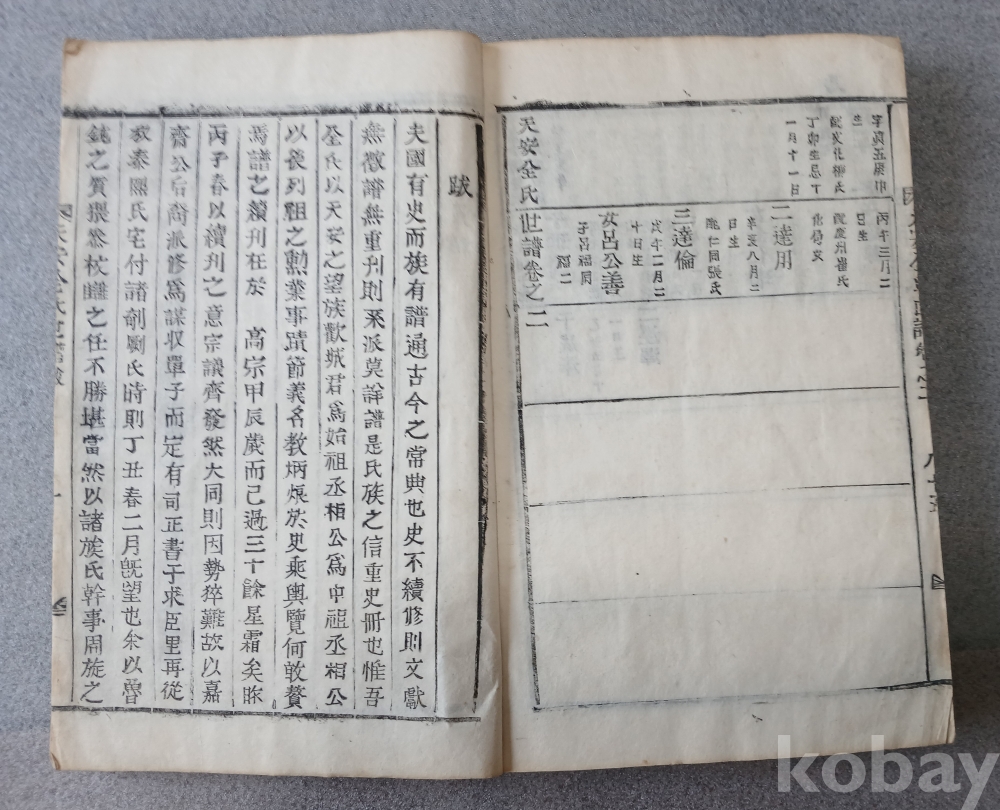 辛
生
配文化柳氏
丁卯生忌丁
一月十一日
丙午三月二
日生
配慶州崔氏
二達用
辛亥八月二
日生
配仁同張氏
三達倫
戊午二月二
十日生
女呂公善
子呂福同
福二
天安全氏世譜卷之二
跋
夫國有史而族有譜通古今之常典也史不續修則文獻
無徵譜無重刊則系派莫詳譜是氏族之信重史冊也惟吾
全氏以天安之望族歡城君爲始祖丞相公爲中祖丞相公
以後列祖之勳業事蹟節義名教炳烺於史乘輿覽何敢贅
焉譜之續刊在於 高宗甲辰歲而已過三十餘星霜矣
丙子春以續刊之意宗議齊發然大同則因勢猝難故以嘉
齋公后裔派修爲謀収單子而定有司正書于求臣里再從
叔泰熙氏宅付諸剞劂氏時則丁丑春二月旣望也余以魯
鈍之質猥忝校讎之任不勝堪當然以諸族氏幹事周旋之
kobay